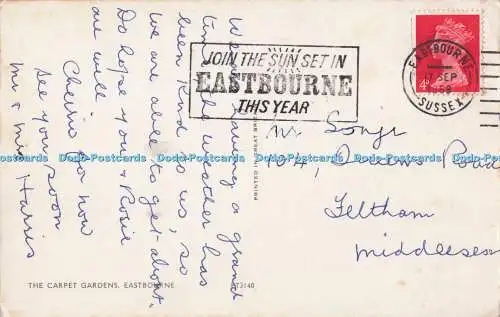 We are having a grand
time, the weather has
been kind to us, so
we are able to get about.
Do hope you & Rosie
are well
Cheerio for now
See you soon
Mr & Mrs Harris
JOIN THE SUN SET IN
EASTBOURNE
THIS YEAR
EASTBOURNE
17 SEP
SUSSEX
4D
Mr
104, Queens Road
Feltham
Middlesex
PRINTED IN GREAT
THE CARPET GARDENS, EASTBOURNE
Dodo-Postcards Dodo-Postcards Dodo-Postcards Dodo-Postcards